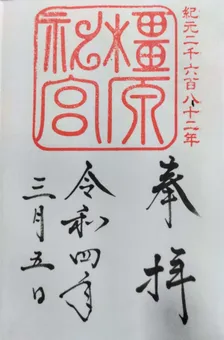 紀元二千六百八十二年
奉拝
橿原神宮
令和四年
三月五日